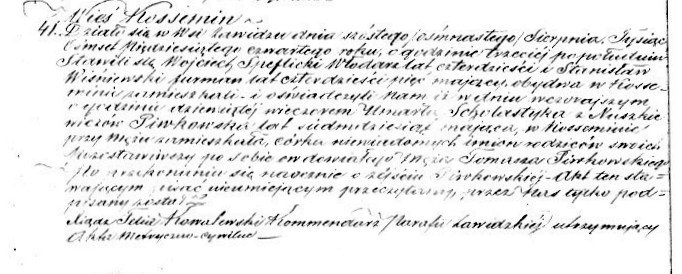 Wieś Kossemin
41. Działo się w Wsi Zawidzu dnia szóstego /ośmnastego/ Sierpnia, Tysiąc
Ośmset Pięćdziesiątego czwartego roku, o godzinie trzeciej po południu
Stawili się Wojciech Włodarz lat czterdzieści i Stanisław
Wiśniewski furman lat czterdzieści pięć mający, obydwa w Kosse-
minie zamieszkali - i oświadczyli Nam iż w dniu wczorajszym
o godzinie dziewiątej wieczorem Umarła Scholastyka z Muszkie-
wiczów Piwkowska lat siedmdziesiąt mająca, w Kosseminie
przy Mężu zamieszkała, córka niewiadomych imion rodziców swoich
Pozostawiwszy po sobie owdowiałego Męża Tomasza Piwkowskiego
Po przekonaniu się naocznie o zejściu Piwkowskiej - Akt ten sta-
wającym, pisać nieumiejącym przeczytany, przez Nas tylko pod-
pisany został
Xiądz Felix Kowalewski Kommendarz Parafii Zawidzkiej utrzymujący
Akta Metryczno-cywilne